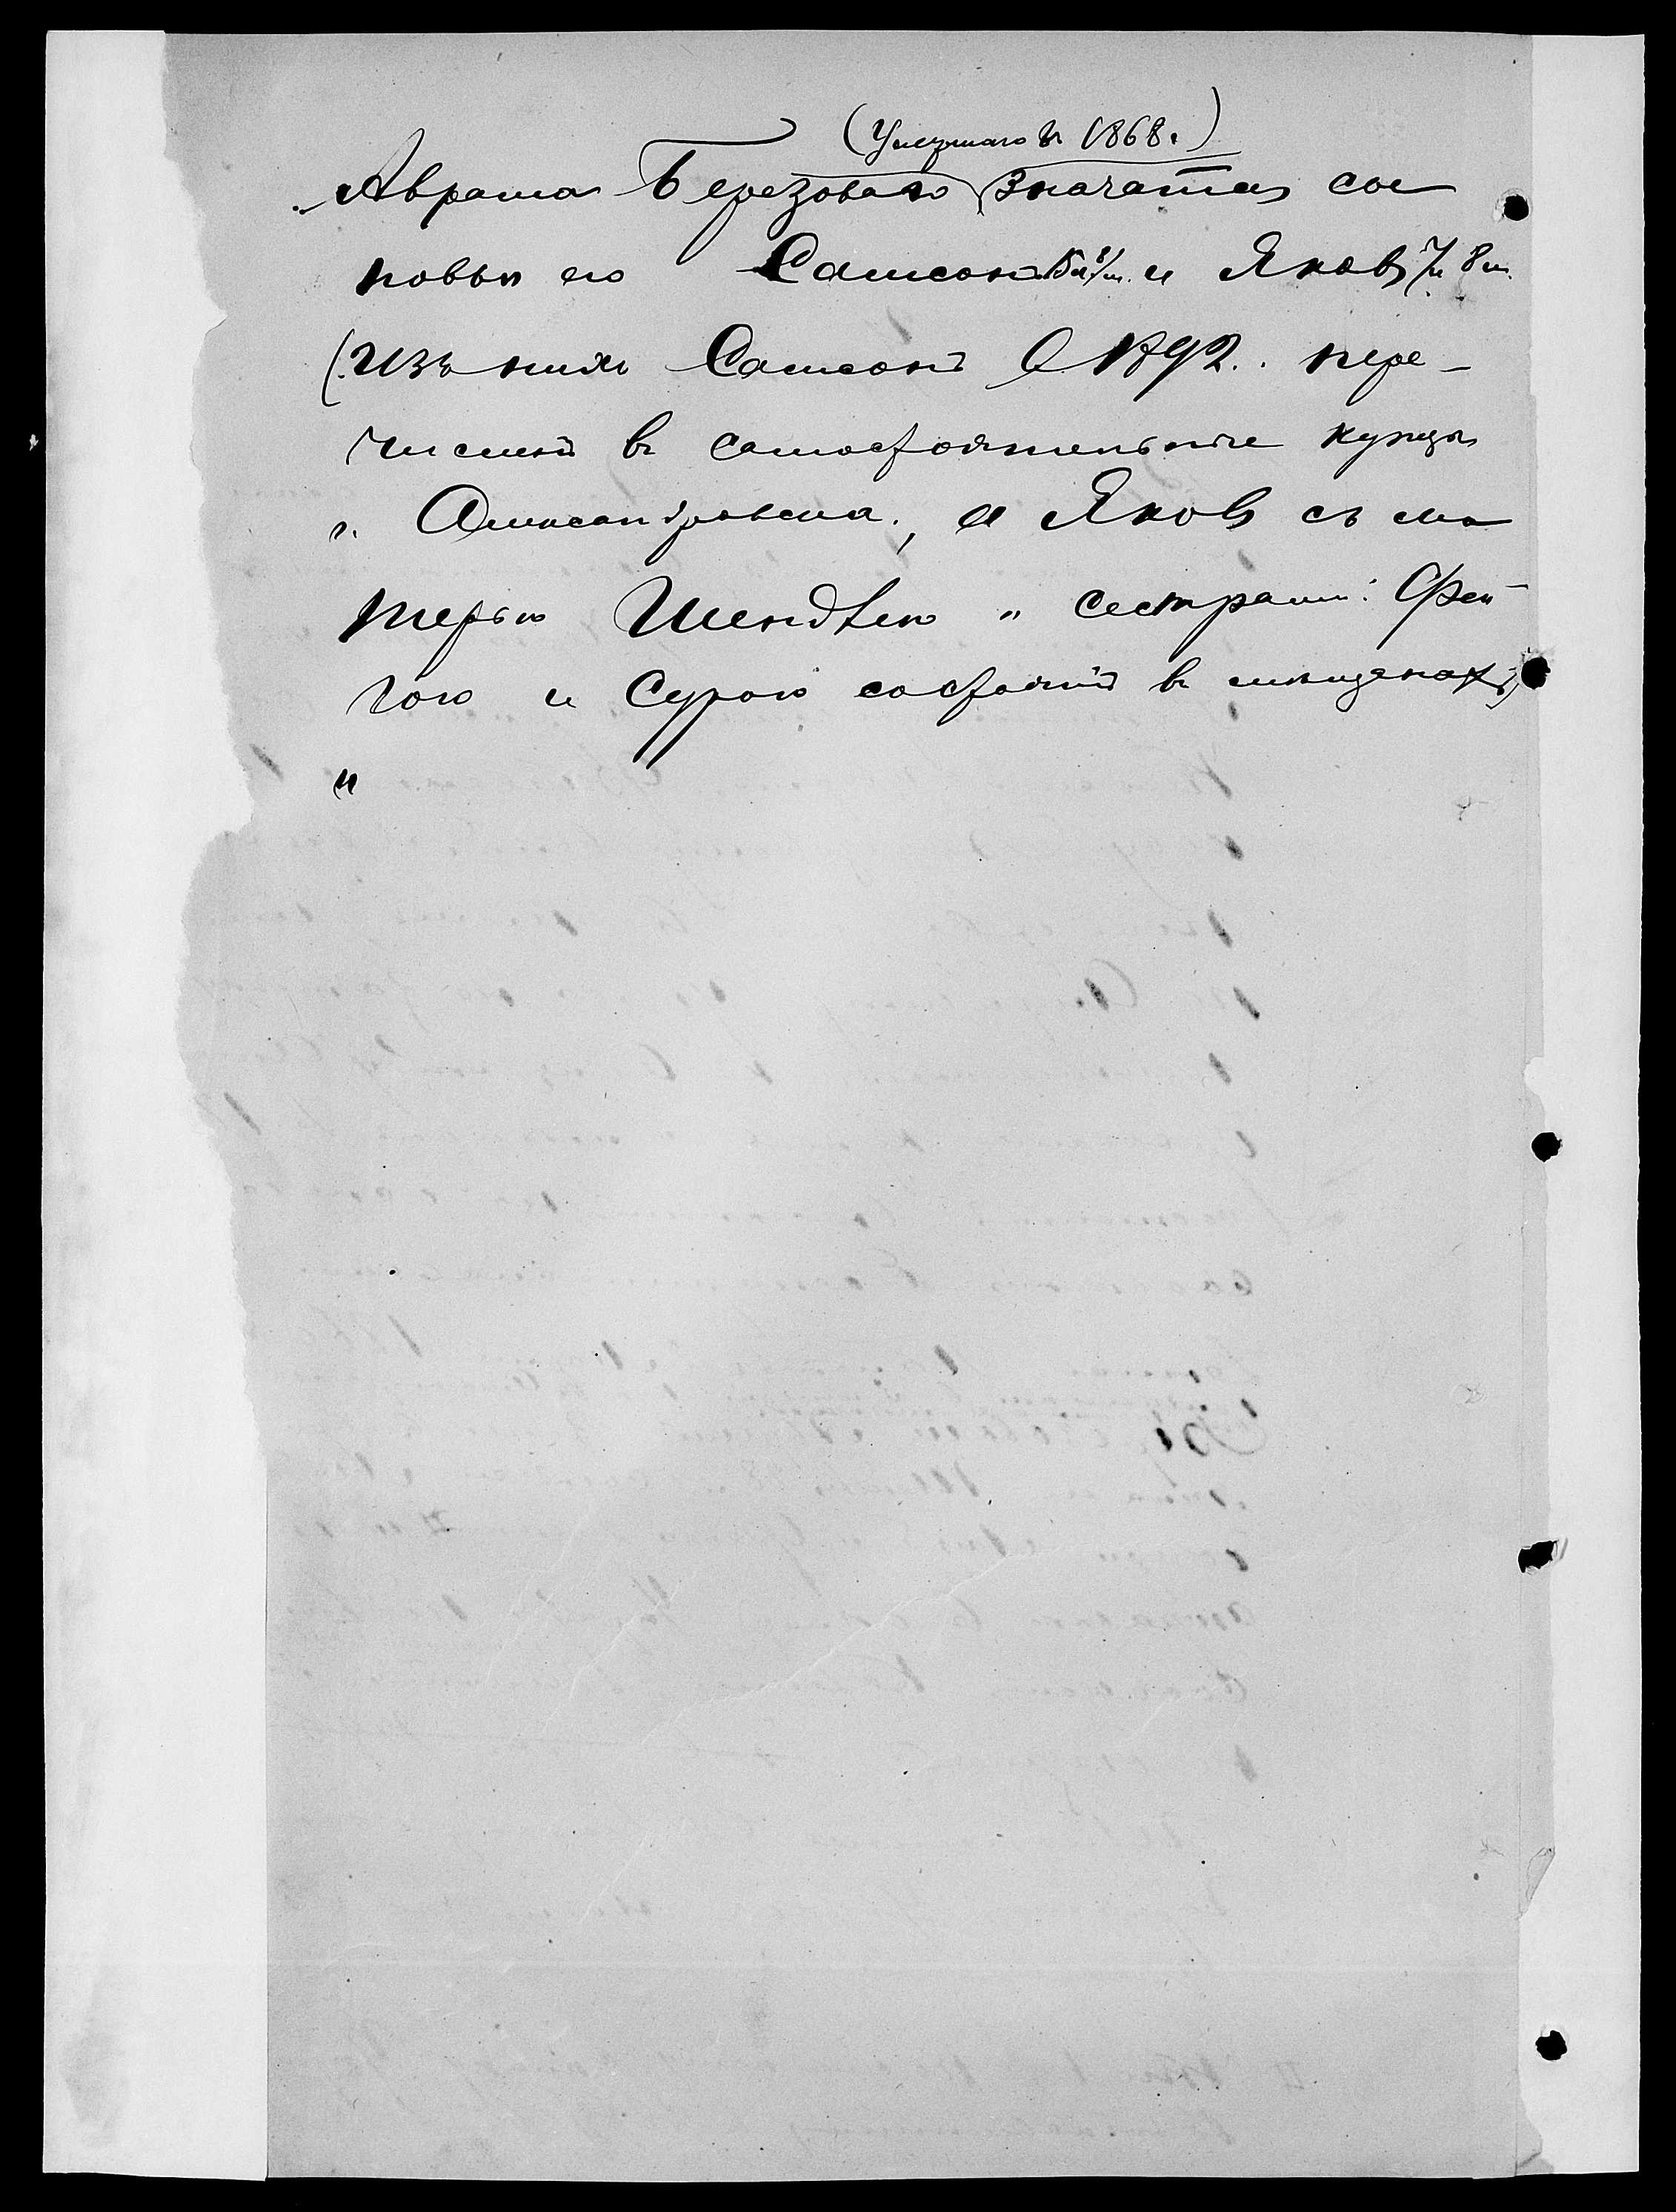 (Умершаго въ 1868 г.)
Аврама Березоваго значатся сы
новья его Самсонъ и Яковъ
(Изъ нихъ Самсонъ с 1892 г. пере-
численъ въ самостоятельные купцы
г. Александровска, а Яковъ съ ма
терью Шендлею и сестрами: Фей
гою и Сурою состоитъ въ мещанахъ)
и